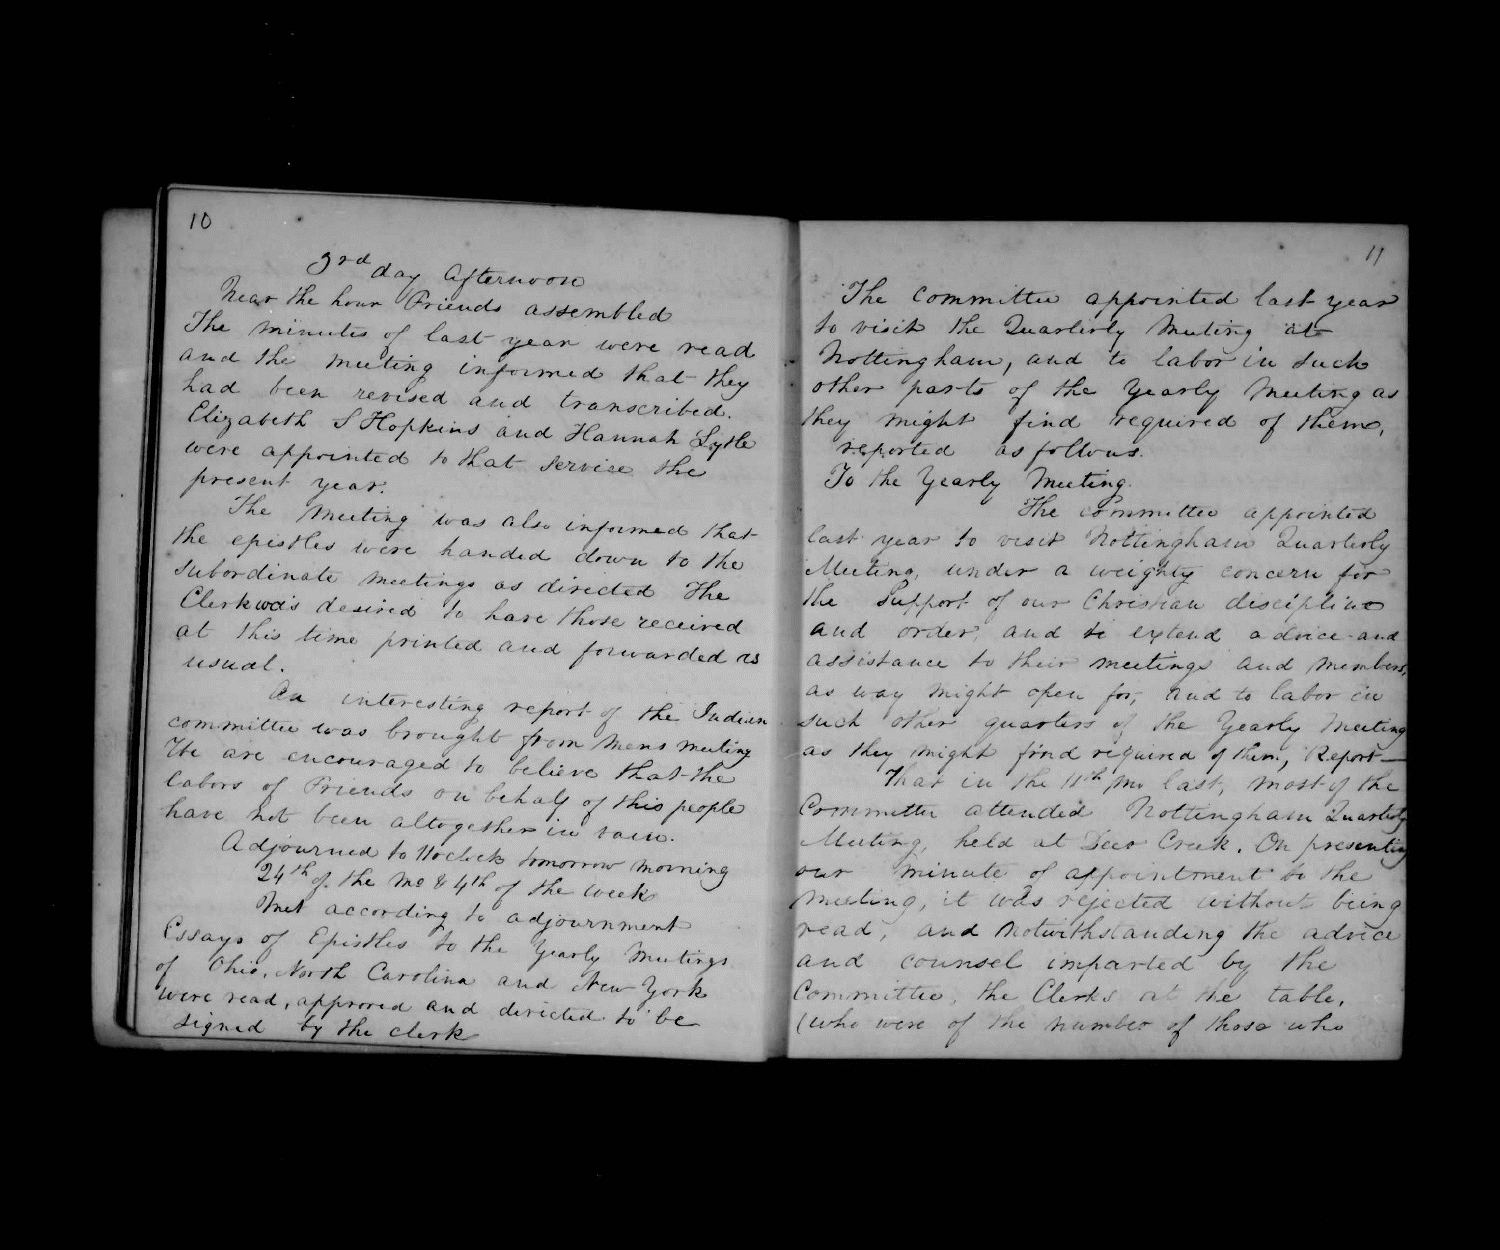 10
3rd day Afternoon
Near the hour Friends assembled
The minutes of last year were read
and the meeting informed that they
had been revised and transcribed.
Elizabeth S Hopkins and Hannah Lytle
were appointed to that servise the
present year.
The Meeting was also informed that
the epistles were handed down to the
subordinate meetings as directed The
Clerk was desired to have those received
at this time printed and forwarded as
usual.
An interesting report of the Indian
committee was brought from mens meeting
We are encouraged to believe that the
labors of Friends on behalf of this people
have not been altogether in vain.
Adjourned to 11 oclock tomorrow morning
24th of the mo & 4th of the week
Met according to adjournment
Essays of Epistles to the Yearly Meetings
of Ohio, North Carolina and New York
were read, approved and directed to be
signed by the clerk
11
The committee appointed last year
to visit the Quarterly Meeting at
Nottingham, and to labor in such
other parts of the Yearly Meeting as
they might find required of them,
reported as follows.
To the Yearly Meeting.
The committee appointed
last year to visit Nottingham Quarterly
Meeting, under a weighty concern for
the support of our Christian discipline
and order, and to extend advice and
assistance to their meetings and members,
as way might open for, and to labor in
such other quarters of the Yearly Meeting
as they might find required of them, Report—
That in the 11th mo last, most of the
Committee attended Nottingham Quarterly
Meeting, held at Deer Creek. On presenting
our minute of appointment to the
meeting, it was rejected without being
read, and notwithstanding the advice
and counsel imparted by the
Committee, the Clerks at the table,
(who were of the number of those who